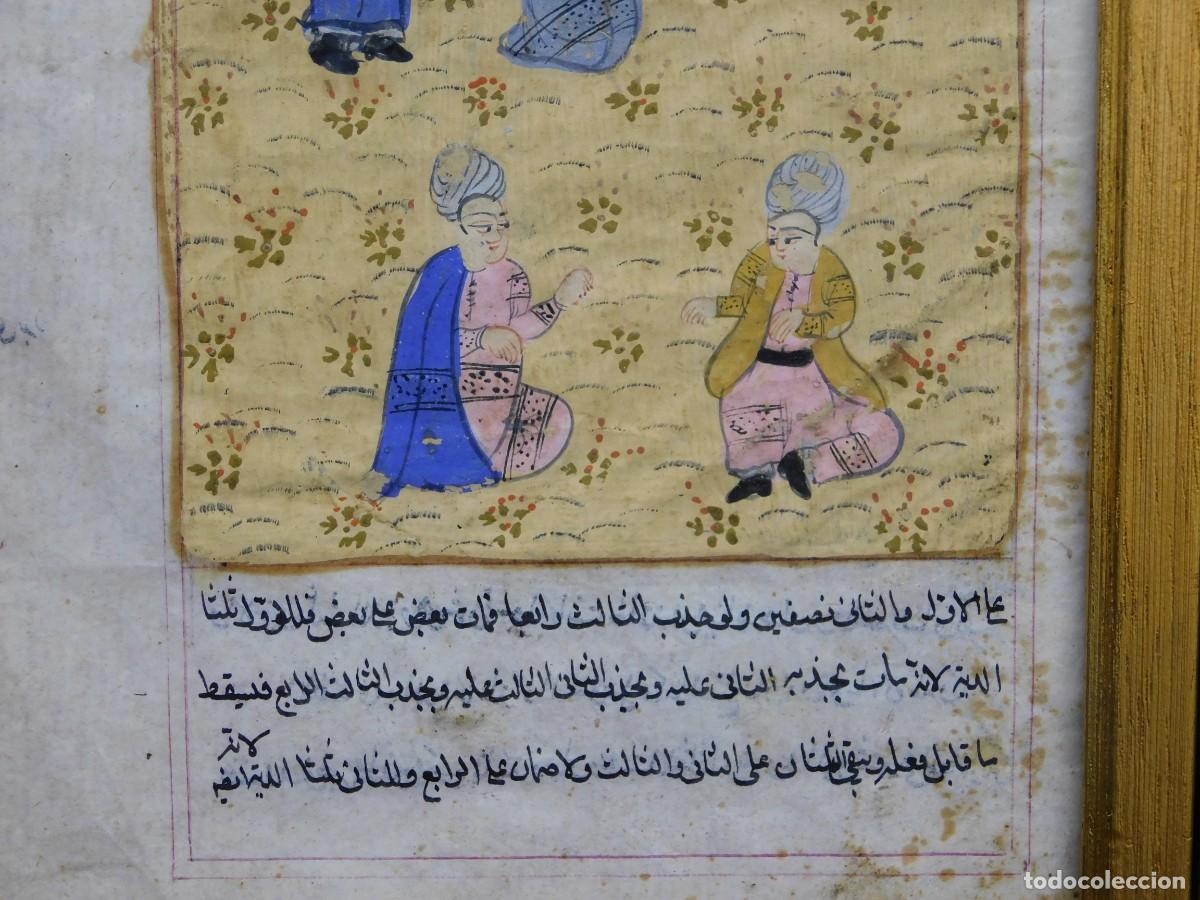 على الاول والثانى نصفين ولو جذب الثالث رابعا فمات بعض على بعض فللاول ثلثا
الدية لانه مات بجذبه الثانى عليه وبجذب الثانى الثالث عليه وبجذب الثالث الرابع فيسقط
ما قابل فعله ويبقى الثلثان على الثانى والثالث ولا ضمان على الرابع وللثانى ثلثا الدية ايضا
لانه
todocoleccion